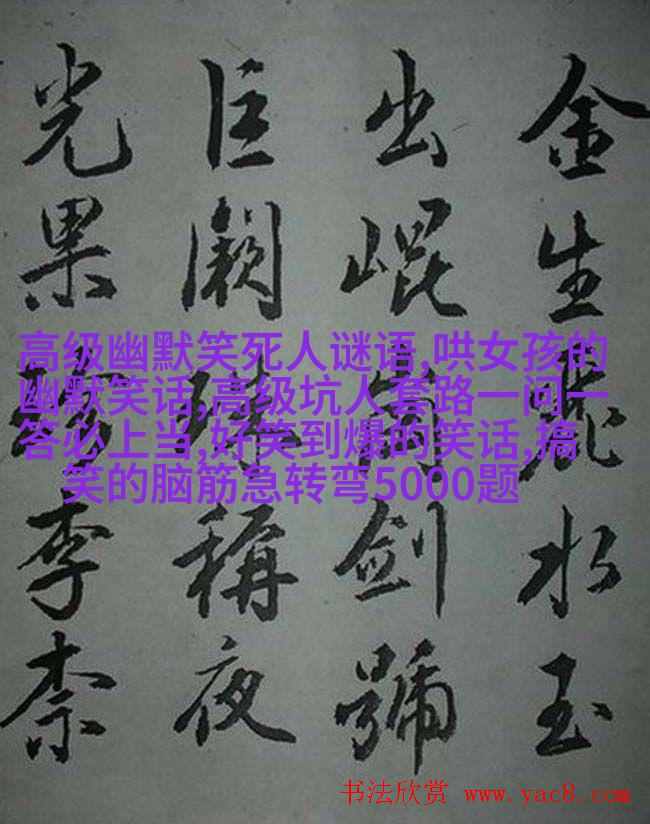 金生麗水玉
出崐岡劍號
巨闕珠稱夜
光果珍李柰
高级幽默笑死人谜语,哄女孩的
幽默笑话,高级坑人套路一问一
答必上当,好笑到爆的笑话,搞
笑的脑筋急转弯5000题
书法欣赏 www.yac8.com